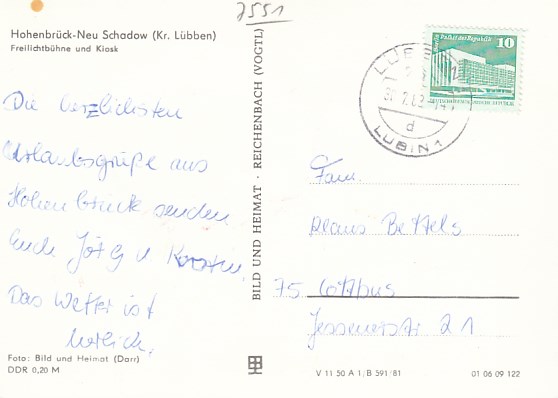 7551
Hohenbrück-Neu Schadow (Kr. Lübben)
Freilichtbühne und Kiosk
Die herzlichsten
Urlaubsgrüße aus
Hohenbrück senden
Euch Jörg u Karsten.
Das Wetter ist
herrlich.
Foto: Bild und Heimat (Darr)
DDR 0,20 M
BILD UND HEIMAT · REICHENBACH (VOGTL)
Palast der Republik
10
LÜBBEN 1
d
LUBIN 1
Fam.
Klaus Bettels
75 Cottbus
Jessenerstr 21
V 11 50 A 1/B 591/81
01 06 09 122